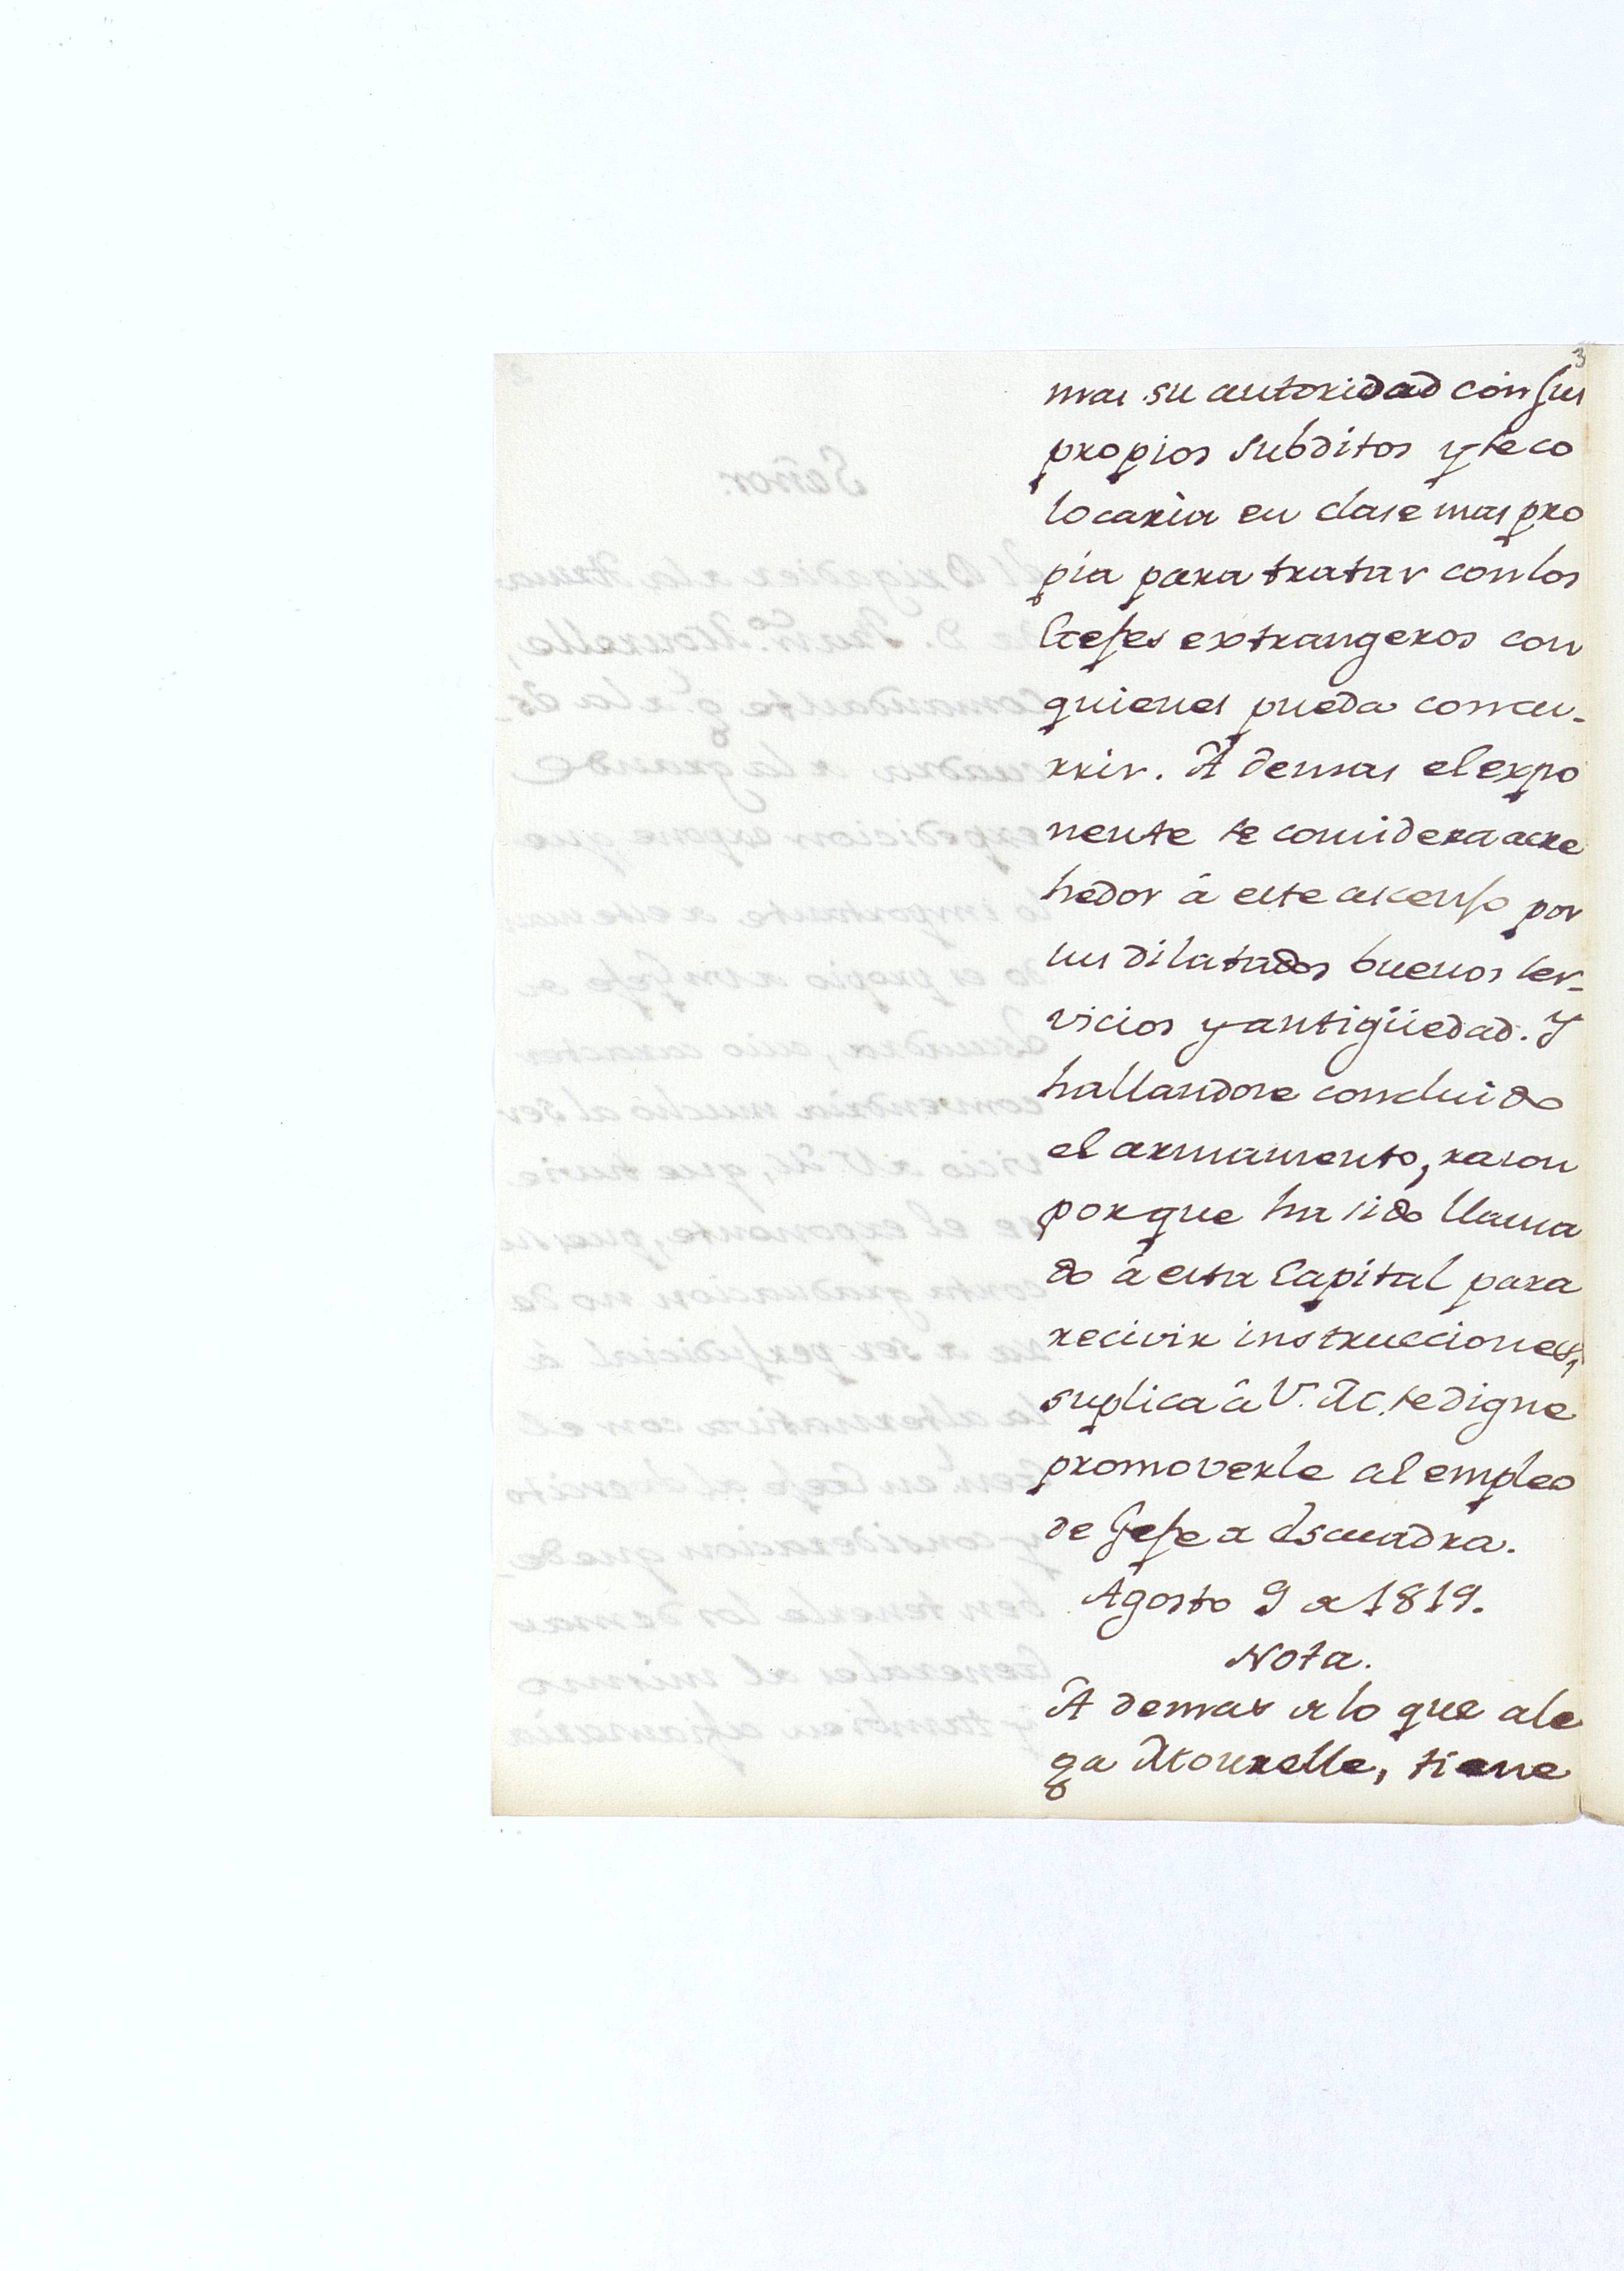 3
mas su autoridad con sus
propios subditos y se co
locaria en clase mas pro
pia para tratar con los
Gefes extrangeros con
quienes pueda concu-
rrir. A demas el expo
nente se considera acre
hedor á este ascenso por
sus dilatados buenos ser-
vicios y antigüedad. Y
hallandose concluido
el armamento, razon
por que ha sido llama
do á esta Capital para
recivir instrucciones,
suplica á V. M. se digne
promoverle al empleo
de Gefe de Escuadra.
Agosto 9 de 1819.
Nota.
A demas de lo que ale
ga Mourelle, tiene